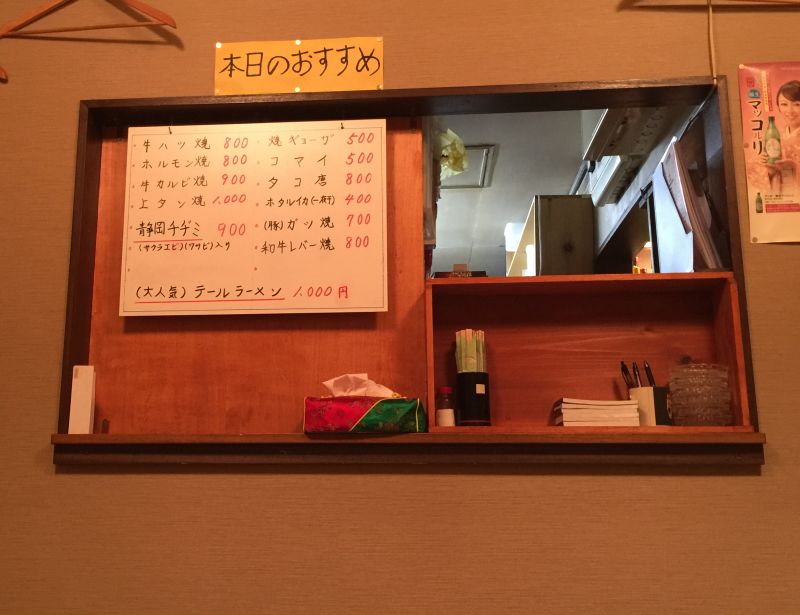 本日のおすすめ
・牛ハツ焼 800
・ホルモン焼 800
・牛カルビ焼 900
・上タン焼 1,000
・静岡チヂミ 900
(サクラエビ)(ワサビ)入り
・焼ギョーザ 500
・コマイ 500
・タコ唐 800
・ホタルイカ(一夜干) 400
・(豚)ガツ焼 700
・和牛レバー焼 800
(大人気) テールラーメン 1,000円
マッコルリ